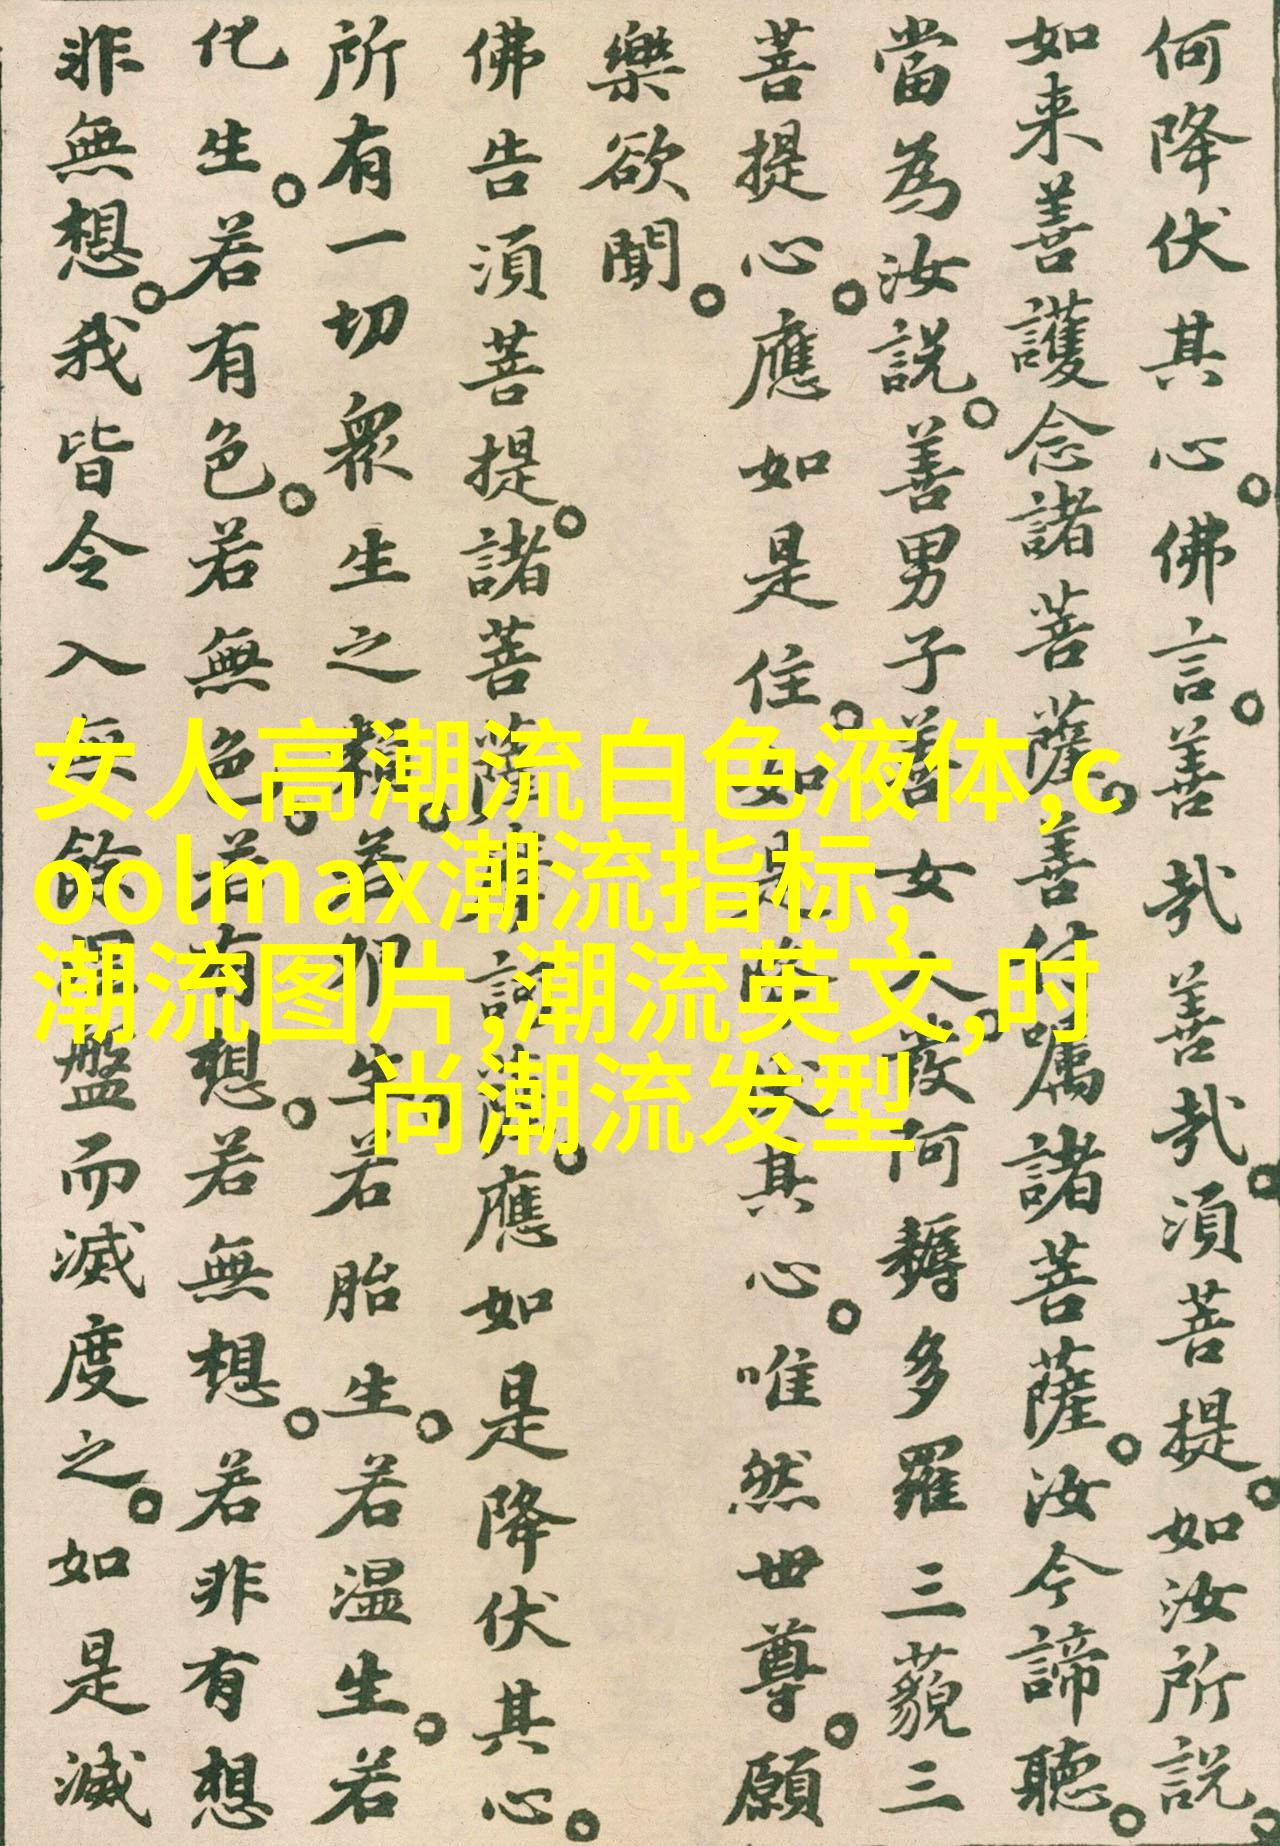 何降伏其心佛言善哉善哉須菩提如汝所說
如来善護念諸菩薩善付嘱諸菩薩汝今諦聽
當為汝説善男子善女人發阿耨多羅三藐三
菩提心應如是住如是降伏其心唯然世尊願
樂欲聞
佛告須菩提諸菩薩摩訶薩應如是降伏其心
所有一切衆生之類若卵生若胎生若温生若
化生若有色若無色若有想若無想若非有想
非無想我皆令入無餘涅盤而滅度之如是滅
女人高潮流白色液体,c
oolmax潮流指标,
潮流图片,潮流英文,时
尚潮流发型